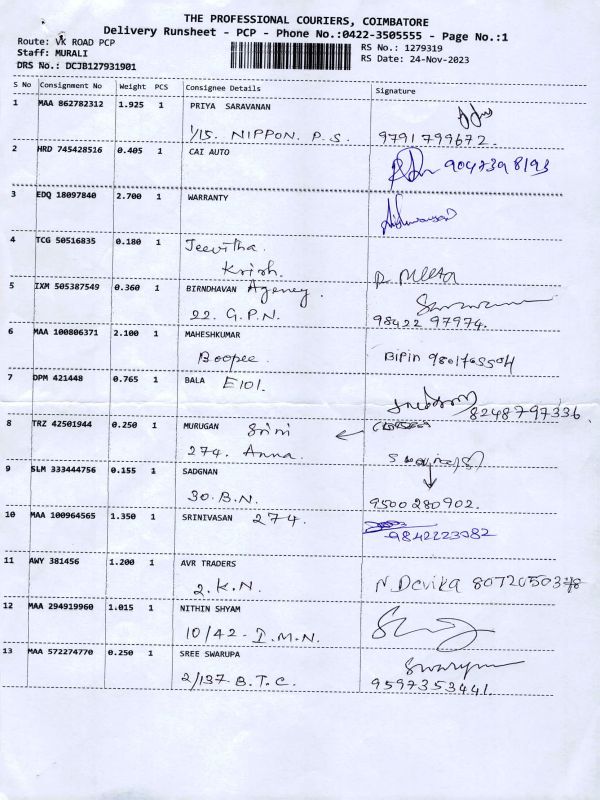 THE PROFESSIONAL COURIERS, COIMBATORE
Delivery Runsheet - PCP - Phone No.:0422-3505555 - Page No.:1
Route: VK ROAD PCP
RS No.: 1279319
Staff: MURALI
RS Date: 24-Nov-2023
DRS No.: DCJB127931901
S No Consignment No Weight PCS Consignee Details Signature
1 MAA 862782312 1.925 1 PRIYA SARAVANAN
1/15. NIPPON. P.S. 9791799672.
2 HRD 745428516 0.405 1 CAI AUTO 9042398193
3 EDQ 18097840 2.700 1 WARRANTY
4 TCG 50516835 0.180 1 Jeevitha.
Krish.
5 IXM 505387549 0.360 1 BIRNDHAVAN Agency.
22. G.P.N. 98422 97974.
6 MAA 100806371 2.100 1 MAHESHKUMAR
Boopee. BIPIN
7 DPM 421448 0.765 1 BALA E101.
8248797336.
8 TRZ 42501944 0.250 1 MURUGAN Srini
274. Anna.
9 SLM 333444756 0.155 1 SADGNAN
30. B.N. 9500280902.
10 MAA 100964565 1.350 1 SRINIVASAN 274.
9842223982
11 AWY 381456 1.200 1 AVR TRADERS
2. K.N. N Devika
12 MAA 294919960 1.015 1 NITHIN SHYAM
10/42 - I.M.N.
13 MAA 572274770 0.250 1 SREE SWARUPA
2/137. B.T.C. 9597353441.